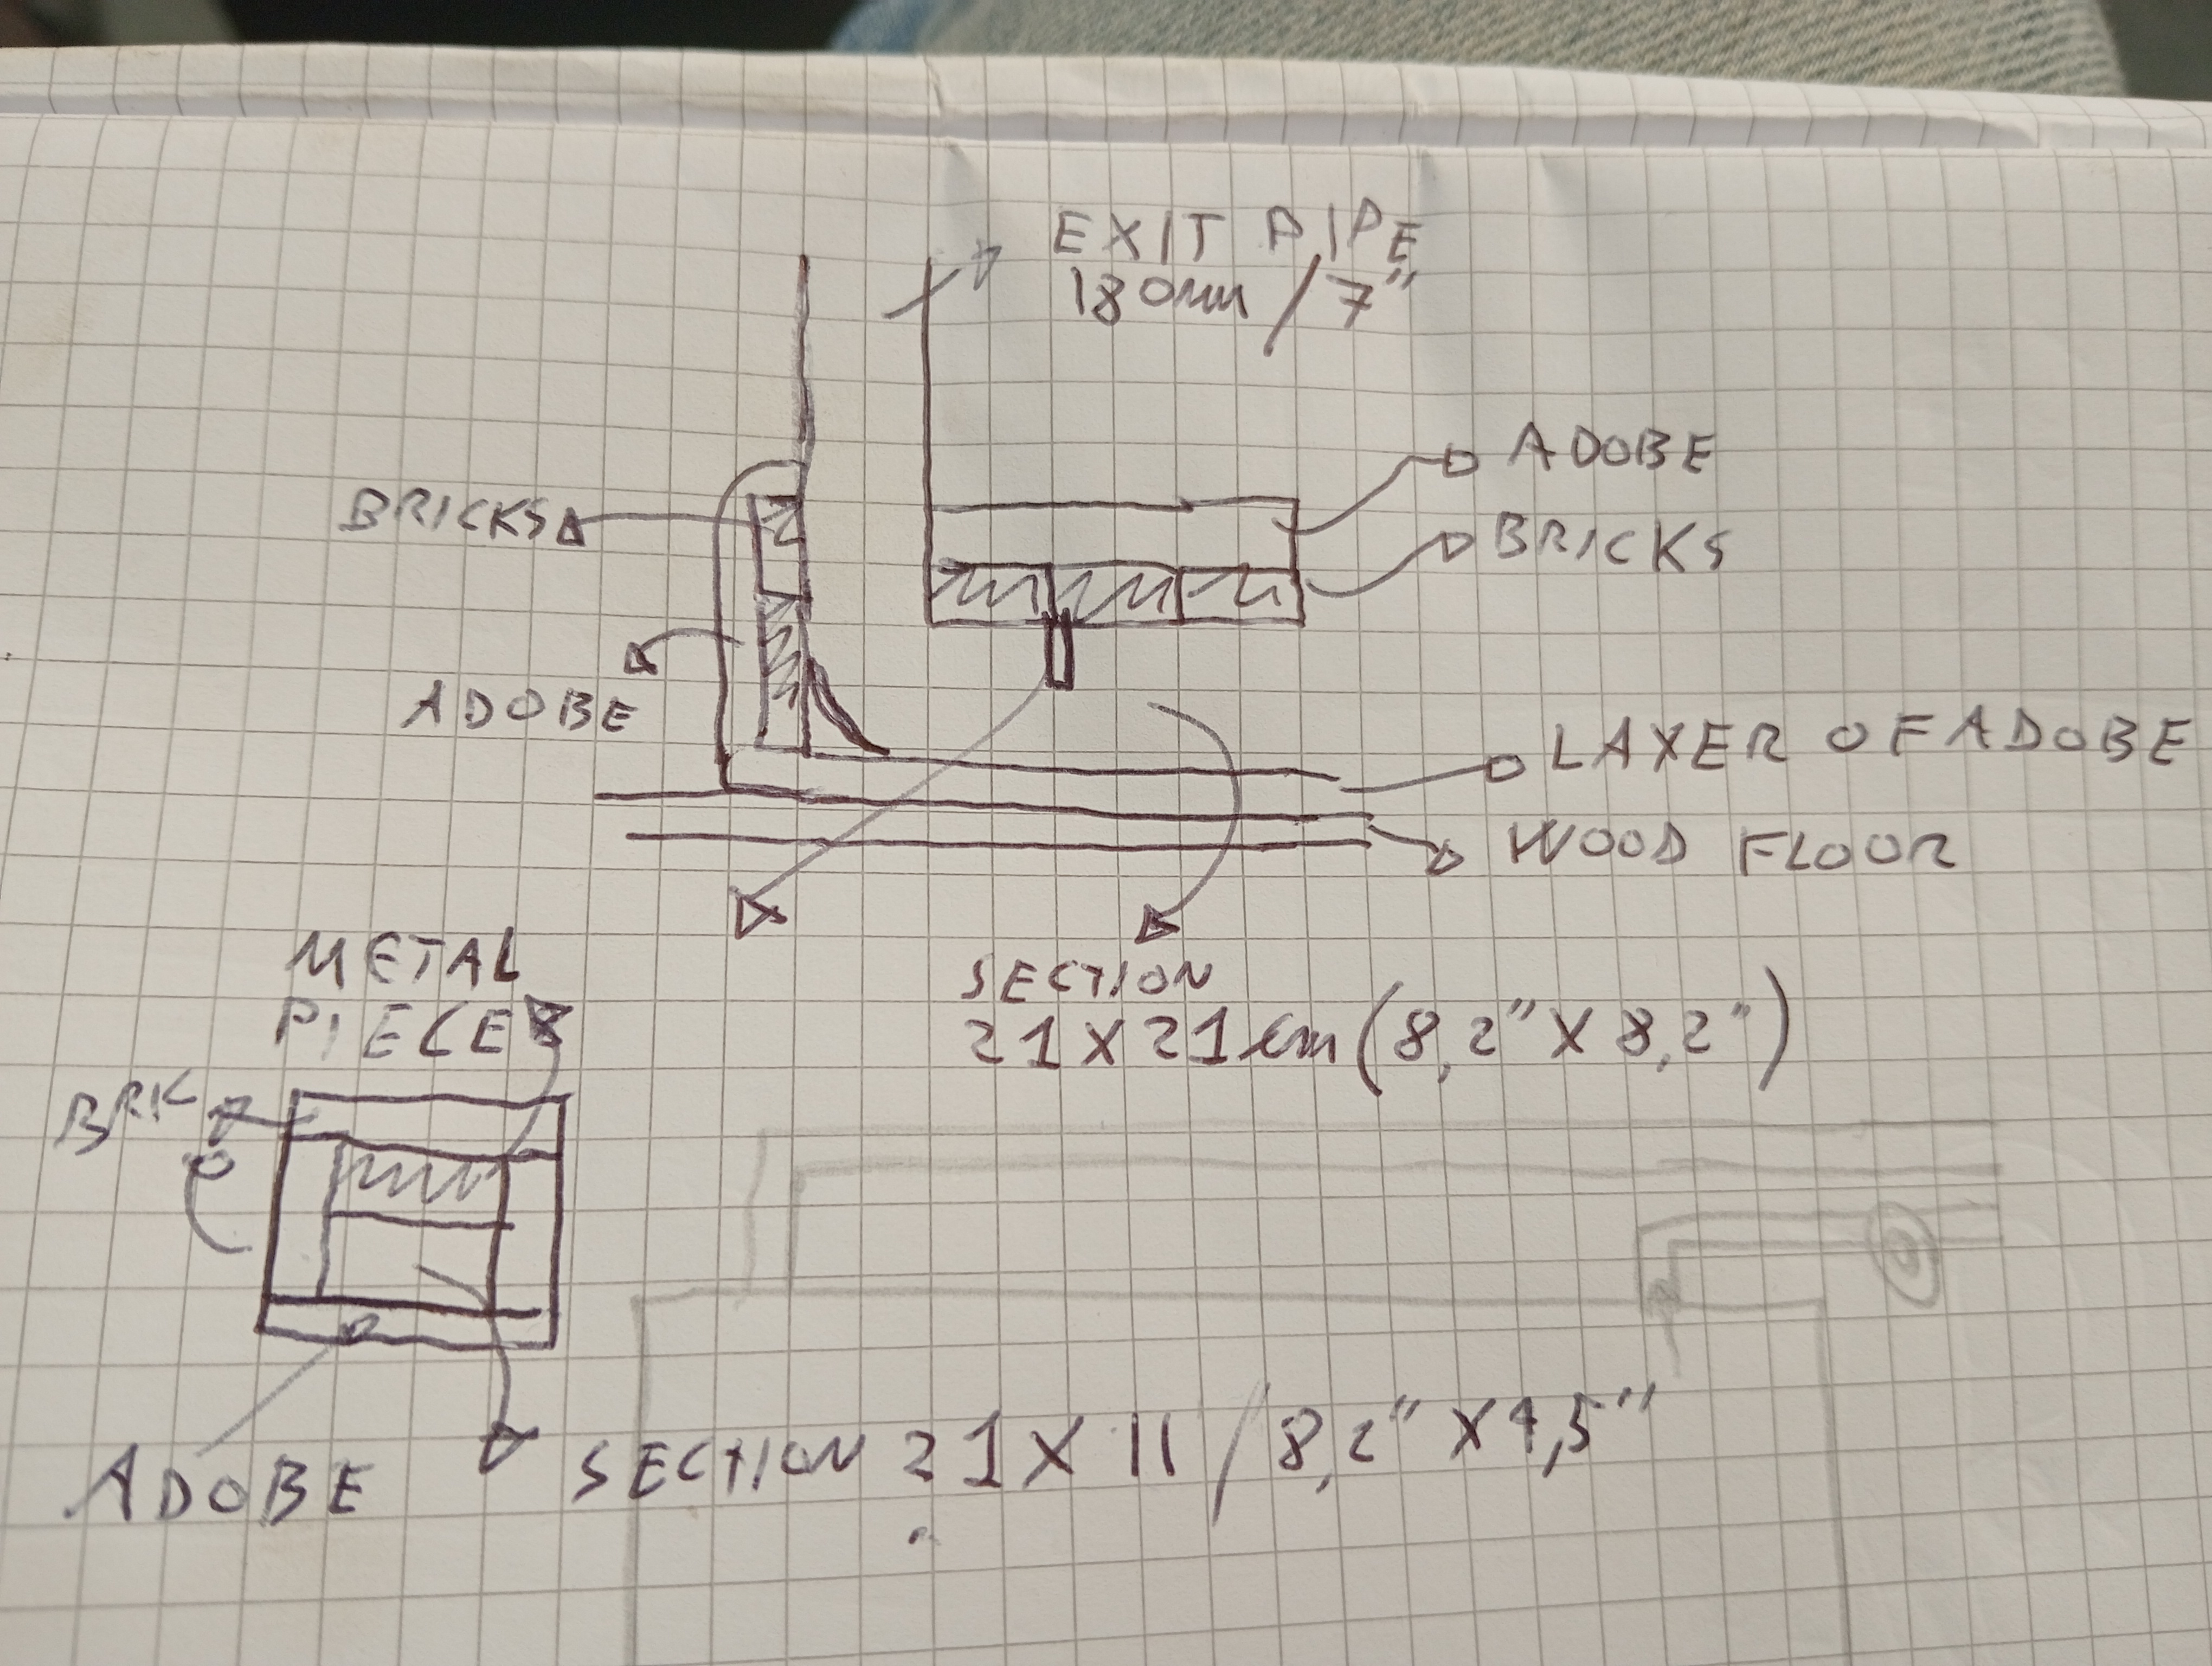 EXIT PIPE
180mm / 7"
ADOBE
BRICKS
BRICKS
ADOBE
LAYER OF ADOBE
WOOD FLOOR
METAL
PIECE
SECTION
21X21cm (8,2" X 8,2")
BRK
ADOBE
SECTION 21X11 / 8,2" X4,5"